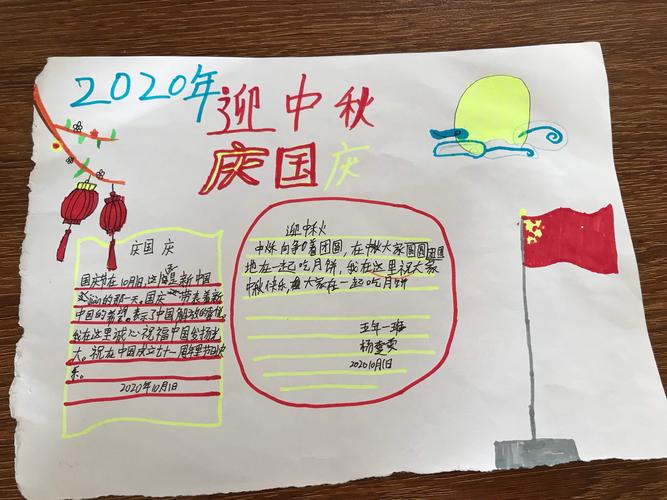 2020年
迎中秋
庆国庆
庆国庆
国庆节在10月1日,这一天是新中国
的那一天。国庆一带表着新
中国的希望。表示了中国解放的喜悦,
我在这里诚心祝福中国发扬光
大。祝在中国成立七十一周年里节日快
乐。
2020年10月1日
迎中秋
中秋向争着团圆,在中秋大家团圆团圆
地在一起吃月饼,我在这里祝大家
中秋快乐,大家在一起吃月饼
五年一班
2020 10月1日